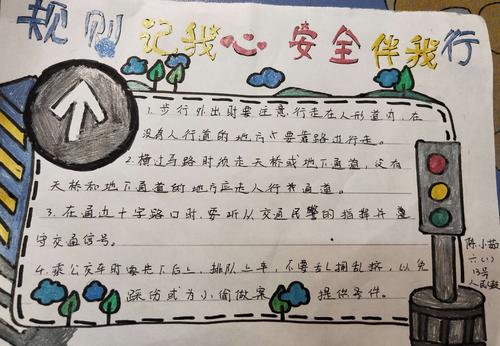 规则记我心 安全伴我行
1.步行外出时要注意,行走在人形道内,在
没有人行道的地方要靠路边行走。
2.横过马路时须走天桥或地下通道,没有
天桥和地下通道的地方应走人行通道。
3.在通边十字路口时,要听从交通民警的指挥并遵
守交通信号。
4.乘公交车时要先下后上,排队上车,不要乱拥乱挤,以免
踩伤或为小偷做案 提供条件。
陈小茹
六(1)
13号